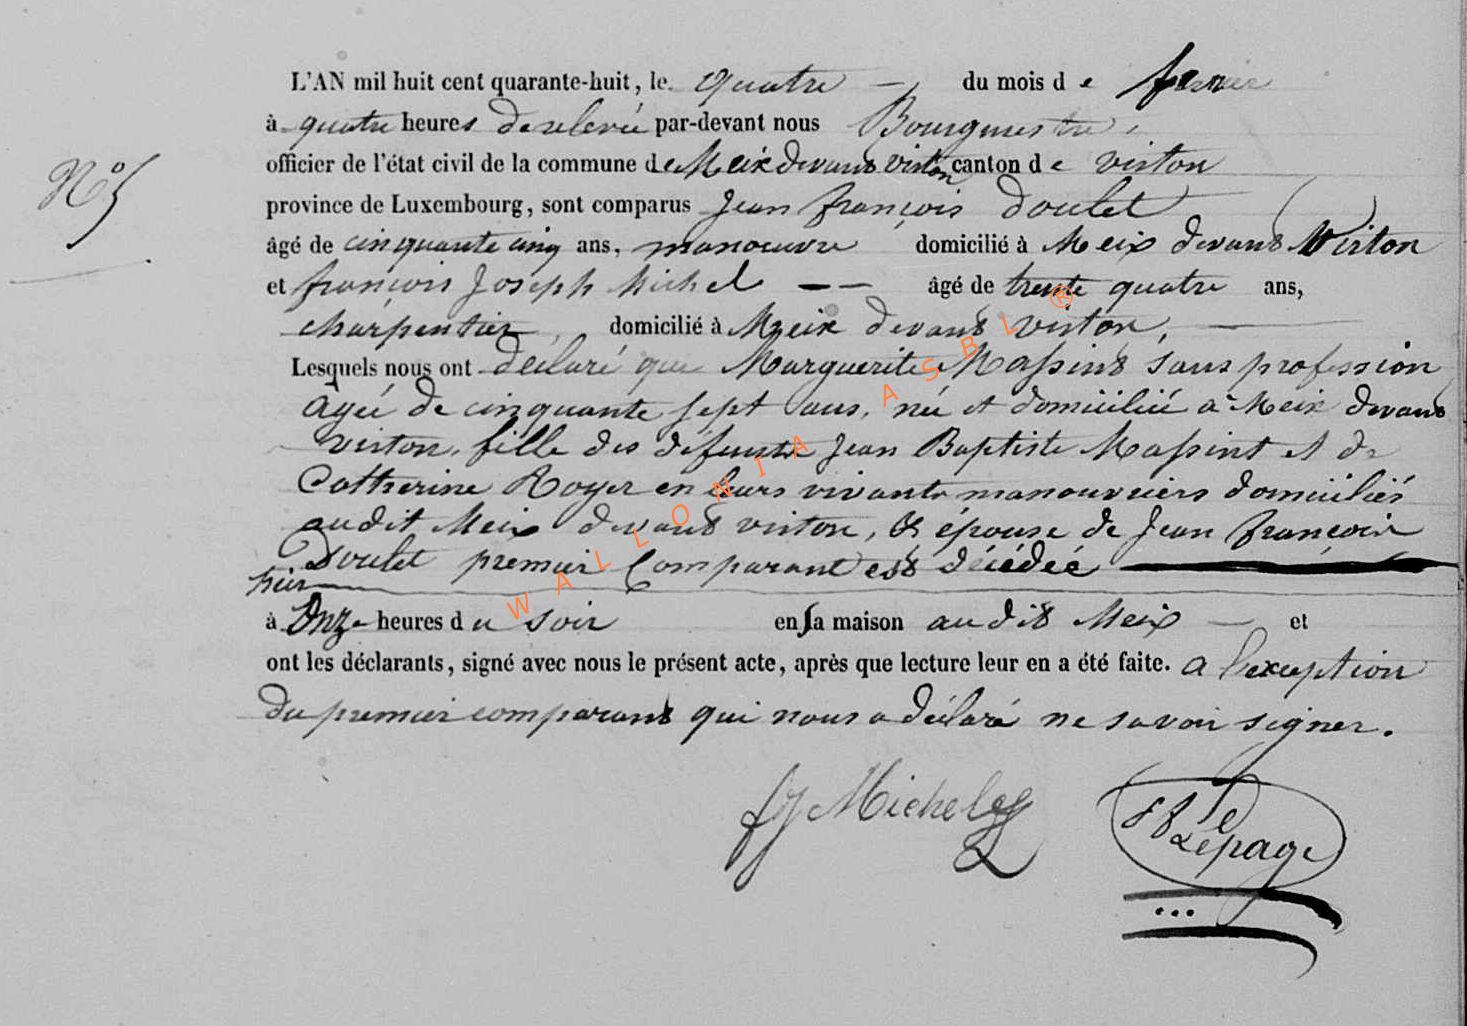 L'AN mil huit cent quarante-huit, le quatre — du mois de fevrier
à quatre heures de relevée par-devant nous Bourgmestre,
officier de l'état civil de la commune de Meix devant virton canton de virton
N° 5
province de Luxembourg, sont comparus Jean françois Doulet
âgé de cinquante cinq ans, manoeuvre domicilié à Meix devant Virton
et françois Joseph Michel — — âgé de trente quatre ans,
charpentier, domicilié à Meix devant virton, —
Lesquels nous ont declaré que Marguerite Massint sans profession
agée de cinquante sept ans, née et domiciliée à Meix devant
virton, fille des défunts Jean Baptiste Massint et de
Catherine Royer en leurs vivants manouvriers domiciliés
audit Meix devant virton, & épouse de Jean françois
Doulet premier Comparant est décédée —
hier —
à Onze heures du soir en sa maison audit Meix — et
ont les déclarants, signé avec nous le présent acte, après que lecture leur en a été faite. a l'exception
du premier comparant qui nous a déclaré ne savoir signer.
fj Michel
Lepage
WALLONIA ASBL ®